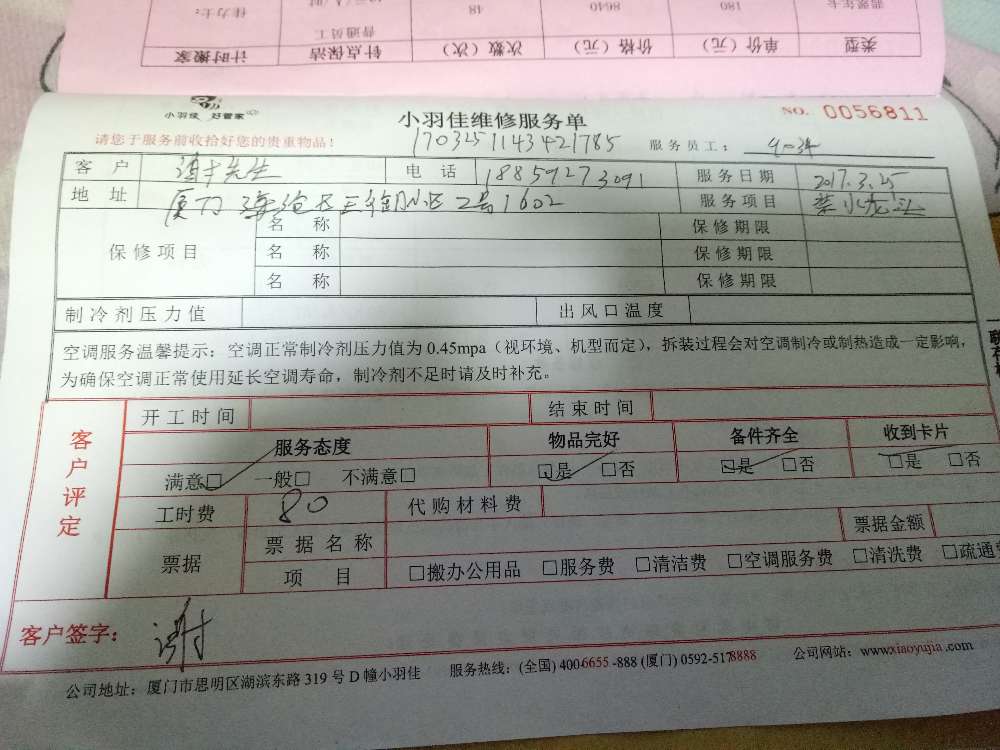 类型 单价（元） 价格（元） 次数（次） 钟点保洁 计时搬家
180 8640 48 普通员工
小羽佳 好管家
小羽佳维修服务单
NO. 0056811
请您于服务前收拾好您的贵重物品！
1703251143421785
服务员工：
客户 谢先生 电话 18859273091 服务日期 2017.3.25
地址 厦门海沧区 小区2号1602 服务项目 菜水龙头
保修项目 名称 保修期限
名称 保修期限
名称 保修期限
制冷剂压力值 出风口温度
空调服务温馨提示：空调正常制冷剂压力值为0.45mpa（视环境、机型而定），拆装过程会对空调制冷或制热造成一定影响，
为确保空调正常使用延长空调寿命，制冷剂不足时请及时补充。
客户评定
开工时间 结束时间
服务态度 物品完好 备件齐全 收到卡片
满意□ 一般□ 不满意□ □是 □否 □是 □否 □是 □否
工时费 80 代购材料费
票据 票据名称 票据金额
项目 □搬办公用品 □服务费 □清洁费 □空调服务费 □清洗费 □疏通费
客户签字： 谢
公司地址：厦门市思明区湖滨东路319号D幢小羽佳 服务热线：(全国) 4006655-888 (厦门) 0592-5178888 公司网站：www.xiaoyujia.com